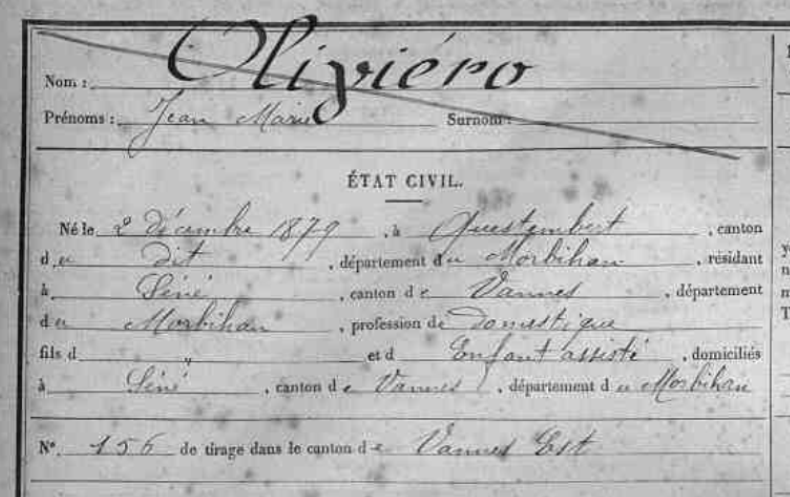 Nom : Oliviéro
Prénoms : Jean Marie Surnom :
ÉTAT CIVIL.
Né le 2 Décembre 1879, à Questembert, canton
du dit, département du Morbihan, résidant
à Séné, canton de Vannes, département
du Morbihan, profession de Domestique
fils d " et d Enfant assisté, domiciliés
à Séné, canton de Vannes, département du Morbihan
N° 156 de tirage dans le canton de Vannes Est